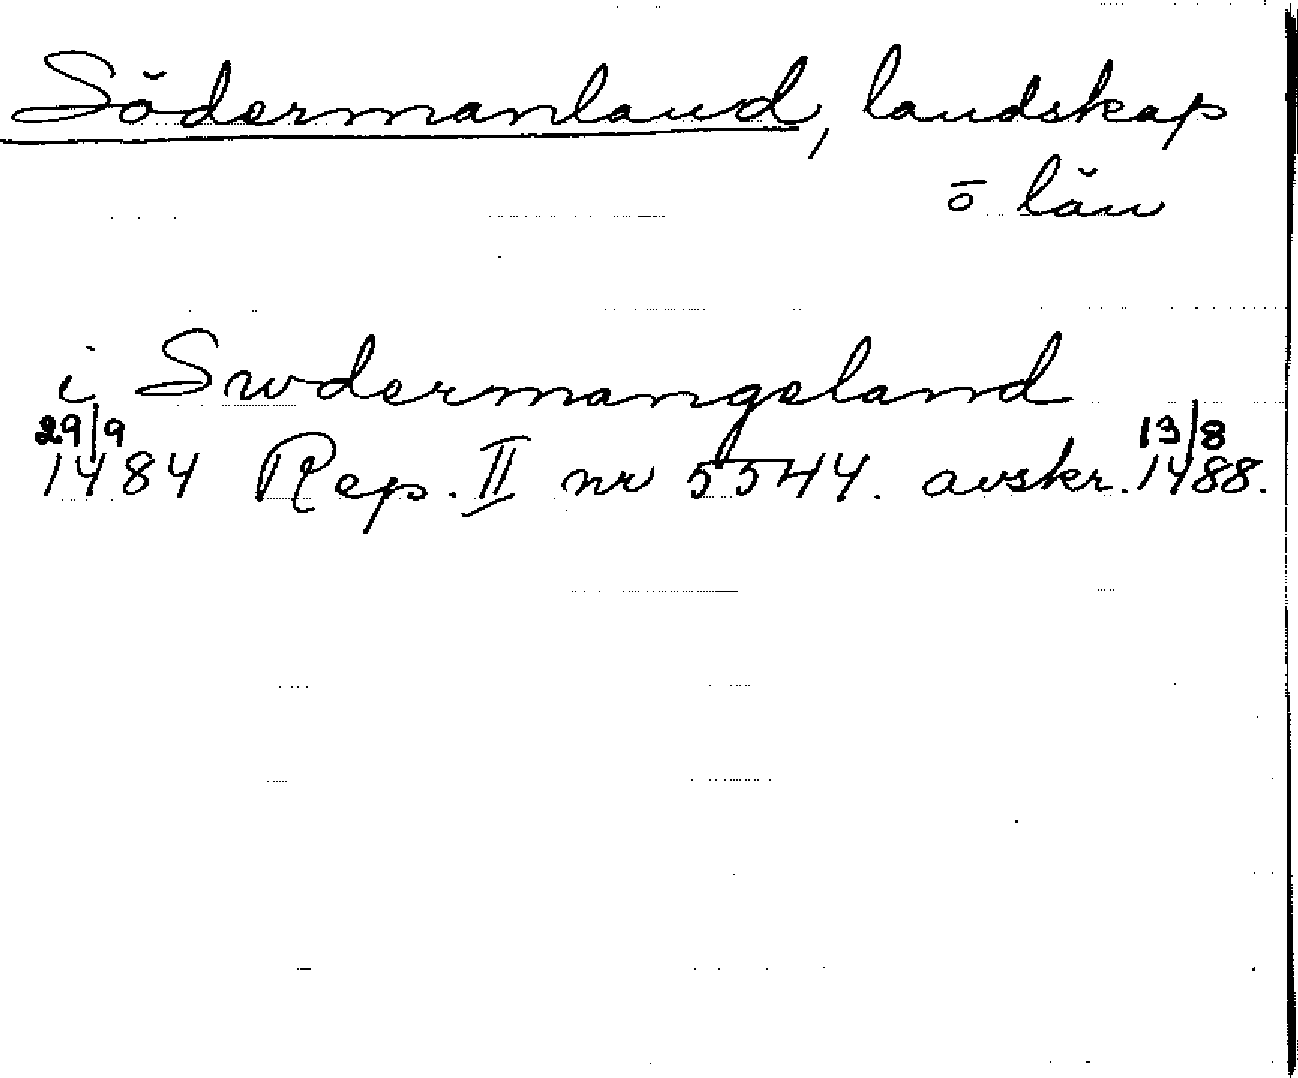 Södermanland, landskap
o län
i Swdermangeland
29/9 13/8
1484 Rep. II nr 5544. avskr. 1488.